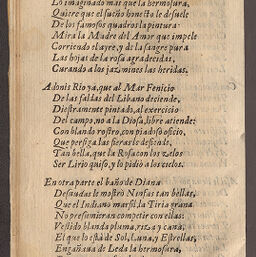 Lo imaginado mas que la hermosura,
Quiere que el sueño honesto le desuele
De los famosos quadros la pintura:
Mira la Madre del Amor que impele
Corriendo el ayre, y de la sangre pura
Las hojas de la rosa agradecidas,
Curando a los jazmines las heridas.
Adonis Rio ya, que al Mar Fenicio
De las faldas del Libano deciende,
Diestramente pintado, al exercicio
Del campo, no a la Diosa, libre atiende:
Con blando rostro, con piadoso oficio,
Que persiga las fieras le defiende,
Tan bella, que la Rosa con los zelos
Ser Lirio quiso, y lo pidio a los cielos.
En otra parte el baño de Diana
Desnudas le mostrò Ninfas tan bellas,
Que el Indiano marfil, la Tiria grana
No presumieran competir con ellas:
Vestido blanda pluma, riza y cana,
El que lo està de Sol, Luna, y Estrellas,
Engañaua de Leda la hermosura,